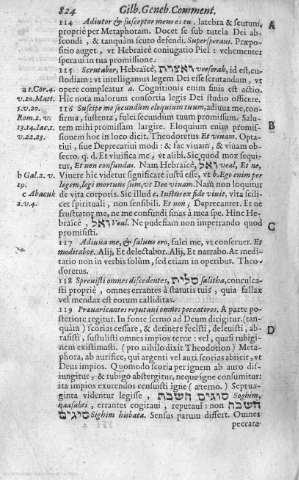 824 Gilb. Geneb. Comment.
114 Adiutor & susceptor meus es tu, latebra & scutum,
proprie per Metaphoram. Docet se sub tutela Dei abs-
condi, & tanquam scuto defendi. Supersperaui. Præpo-
sitio auget, vt Hebraicè coniugatio Piel: vehementer
speraui.
115 Scrutabor, Hebraicè, ואצרה id est, cu-
stodiam: vt intelligamus legem Dei esse seruandam, vt
opere compleatur a. Cognitionis enim finis est actio.
Hic nota malorum consortia legis Dei studio officere.
116 Suscipe me secundum eloquium tuum, alij tua me, confir-
ma, sustenta, fulci secundum tuum promissum. Salu-
tem mihi promissam largire. Eloquium enim promissi-
onem in hoc loco dicit. Theodoretus Et viuam. Opta-
tiui, siue Deprecatiui modi: & fac viuam, & viuam ob-
secro. q. d. Et viuifica me, vt alibi. Sic, quod mox sequi-
tur, Et non confundas. Nam Hebraicè, ואל veal, Et ne,
Viuere hic videtur significare iustū esse, vt b Ego enim per
legem, legi mortuus sum, vt Deo viuam. Nam non loquitur
de vita corporis. Sic illud c, Iustus ex fide viuit, vita scili-
cet spirituali, non sensibili. Et non, Deprecanter. Et ne
frustrator me, ne me confundi sinas à mea spe. Hinc He-
braicè, ואל Veal. Ne pudefiam non impetrando quod
promisisti.
117 Adiuua me, & saluus ero, fulci me, vt conseruer. Et
meditabor. Alij, Et delectabor. Alij, Et narrabo. At medita-
tio non in verbis solùm, sed etiam in operibus. Theo-
doretus.
118 Spreuisti omnes discedentes, סלית salitha, conculca-
sti propriè, omnes errantes à statutis tuis, quia fallax
vel mendax est eorum calliditas.
119 Præuaricantes reputaui omnes peccatores. A parte po-
steriore legitur. In fonte sermo ad Deum dirigitur, (tan-
quam) scorias cessare, & desinere fecisti, deleuisti, ab-
rasisti, sustulisti omnes impios terræ: vel, quasi rubigi-
nem existimasti. (pro nihilo dixit Theodotion) Meta-
phora, ab aurifice, qui argenti vel auri scorias abiicit, vt
Deus impios. Quomodo scoria perignem ab auro dis-
iungitur, & tubigo abstergitur, neque igne consumitur:
ita impios exurendos censuisti igne (æterno.) Septua-
ginta videntur legisse, סוגים חשבת Soghim,
haschabta, errantes cogitaui, reputaui: non השבת
סיגים Sighim hisbata. Sensus parum differt. Omnes
peccato-
A
B
C
D
a 1. Cor. 4.
v. 20. Matt.
Rom. 2. v.
13. 14. Iac. 1.
v. 22. 23.
b Gal. 2. v.
19.
c Abacuk
2. v. 4.